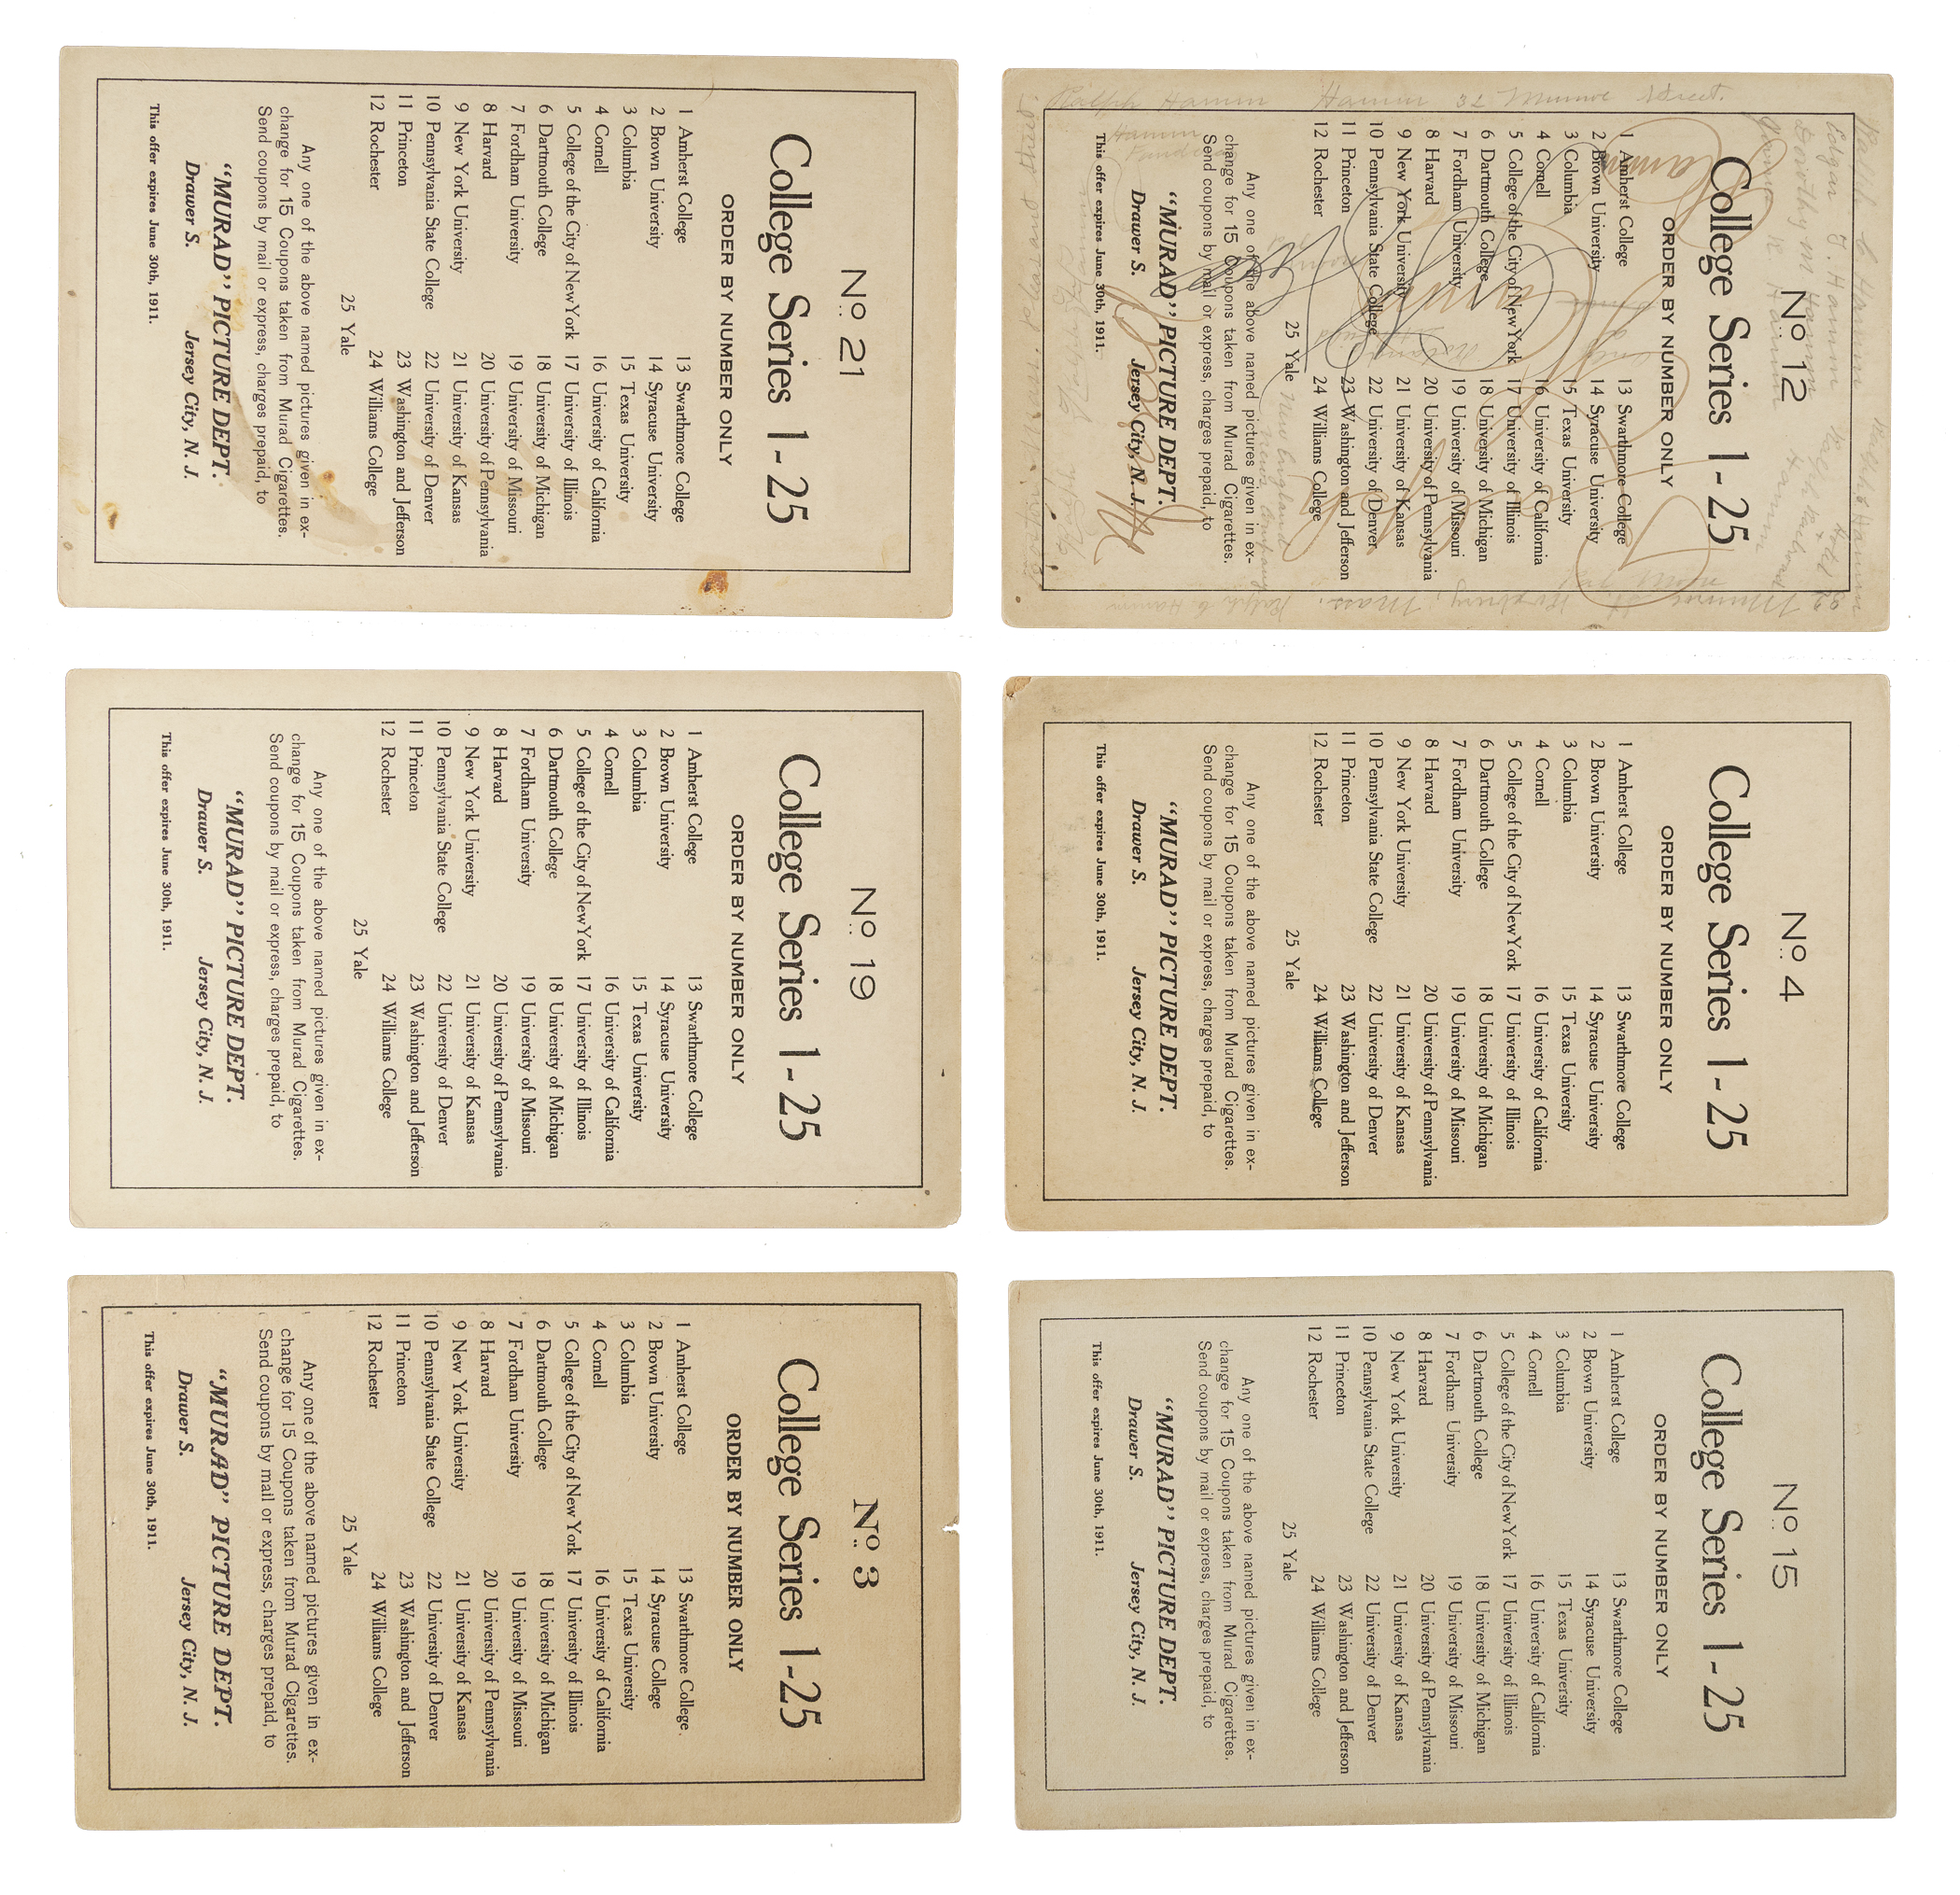 No. 21
College Series 1-25
ORDER BY NUMBER ONLY
1 Amherst College 13 Swarthmore College
2 Brown University 14 Syracuse University
3 Columbia 15 Texas University
4 Cornell 16 University of California
5 College of the City of New York 17 University of Illinois
6 Dartmouth College 18 University of Michigan
7 Fordham University 19 University of Missouri
8 Harvard 20 University of Pennsylvania
9 New York University 21 University of Kansas
10 Pennsylvania State College 22 University of Denver
11 Princeton 23 Washington and Jefferson
12 Rochester 24 Williams College
25 Yale
Any one of the above named pictures given in ex-
change for 15 Coupons taken from Murad Cigarettes.
Send coupons by mail or express, charges prepaid, to
"MURAD" PICTURE DEPT.
Drawer S. Jersey City, N. J.
This offer expires June 30th, 1911.
Edgar F. Hamm
Dorothy M Hamm
No. 12
College Series 1-25
ORDER BY NUMBER ONLY
1 Amherst College 13 Swarthmore College
2 Brown University 14 Syracuse University
3 Columbia 15 Texas University
4 Cornell 16 University of California
5 College of the City of New York 17 University of Illinois
6 Dartmouth College 18 University of Michigan
7 Fordham University 19 University of Missouri
8 Harvard 20 University of Pennsylvania
9 New York University 21 University of Kansas
10 Pennsylvania State College 22 University of Denver
11 Princeton 23 Washington and Jefferson
12 Rochester 24 Williams College
25 Yale
New England
Any one of the above named pictures given in ex-
change for 15 Coupons taken from Murad Cigarettes.
Send coupons by mail or express, charges prepaid, to
"MURAD" PICTURE DEPT.
Drawer S. Jersey City, N. J.
This offer expires June 30th, 1911.
Ralph Hamm Hamm 32 Munroe Street.
Munroe St. Roxbury, Mass. Ralph E. Hamm
No. 19
College Series 1-25
ORDER BY NUMBER ONLY
1 Amherst College 13 Swarthmore College
2 Brown University 14 Syracuse University
3 Columbia 15 Texas University
4 Cornell 16 University of California
5 College of the City of New York 17 University of Illinois
6 Dartmouth College 18 University of Michigan
7 Fordham University 19 University of Missouri
8 Harvard 20 University of Pennsylvania
9 New York University 21 University of Kansas
10 Pennsylvania State College 22 University of Denver
11 Princeton 23 Washington and Jefferson
12 Rochester 24 Williams College
25 Yale
Any one of the above named pictures given in ex-
change for 15 Coupons taken from Murad Cigarettes.
Send coupons by mail or express, charges prepaid, to
"MURAD" PICTURE DEPT.
Drawer S. Jersey City, N. J.
This offer expires June 30th, 1911.
No. 4
College Series 1-25
ORDER BY NUMBER ONLY
1 Amherst College 13 Swarthmore College
2 Brown University 14 Syracuse University
3 Columbia 15 Texas University
4 Cornell 16 University of California
5 College of the City of New York 17 University of Illinois
6 Dartmouth College 18 University of Michigan
7 Fordham University 19 University of Missouri
8 Harvard 20 University of Pennsylvania
9 New York University 21 University of Kansas
10 Pennsylvania State College 22 University of Denver
11 Princeton 23 Washington and Jefferson
12 Rochester 24 Williams College
25 Yale
Any one of the above named pictures given in ex-
change for 15 Coupons taken from Murad Cigarettes.
Send coupons by mail or express, charges prepaid, to
"MURAD" PICTURE DEPT.
Drawer S. Jersey City, N. J.
This offer expires June 30th, 1911.
No. 3
College Series 1-25
ORDER BY NUMBER ONLY
1 Amherst College 13 Swarthmore College.
2 Brown University 14 Syracuse College
3 Columbia 15 Texas University
4 Cornell 16 University of California
5 College of the City of New York 17 University of Illinois
6 Dartmouth College 18 University of Michigan
7 Fordham University 19 University of Missouri
8 Harvard 20 University of Pennsylvania
9 New York University 21 University of Kansas
10 Pennsylvania State College 22 University of Denver
11 Princeton 23 Washington and Jefferson
12 Rochester 24 Williams College
25 Yale
Any one of the above named pictures given in ex-
change for 15 Coupons taken from Murad Cigarettes.
Send coupons by mail or express, charges prepaid, to
"MURAD" PICTURE DEPT.
Drawer S. Jersey City, N. J.
This offer expires June 30th, 1911.
No. 15
College Series 1-25
ORDER BY NUMBER ONLY
1 Amherst College 13 Swarthmore College
2 Brown University 14 Syracuse University
3 Columbia 15 Texas University
4 Cornell 16 University of California
5 College of the City of New York 17 University of Illinois
6 Dartmouth College 18 University of Michigan
7 Fordham University 19 University of Missouri
8 Harvard 20 University of Pennsylvania
9 New York University 21 University of Kansas
10 Pennsylvania State College 22 University of Denver
11 Princeton 23 Washington and Jefferson
12 Rochester 24 Williams College
25 Yale
Any one of the above named pictures given in ex-
change for 15 Coupons taken from Murad Cigarettes.
Send coupons by mail or express, charges prepaid, to
"MURAD" PICTURE DEPT.
Drawer S. Jersey City, N. J.
This offer expires June 30th, 1911.